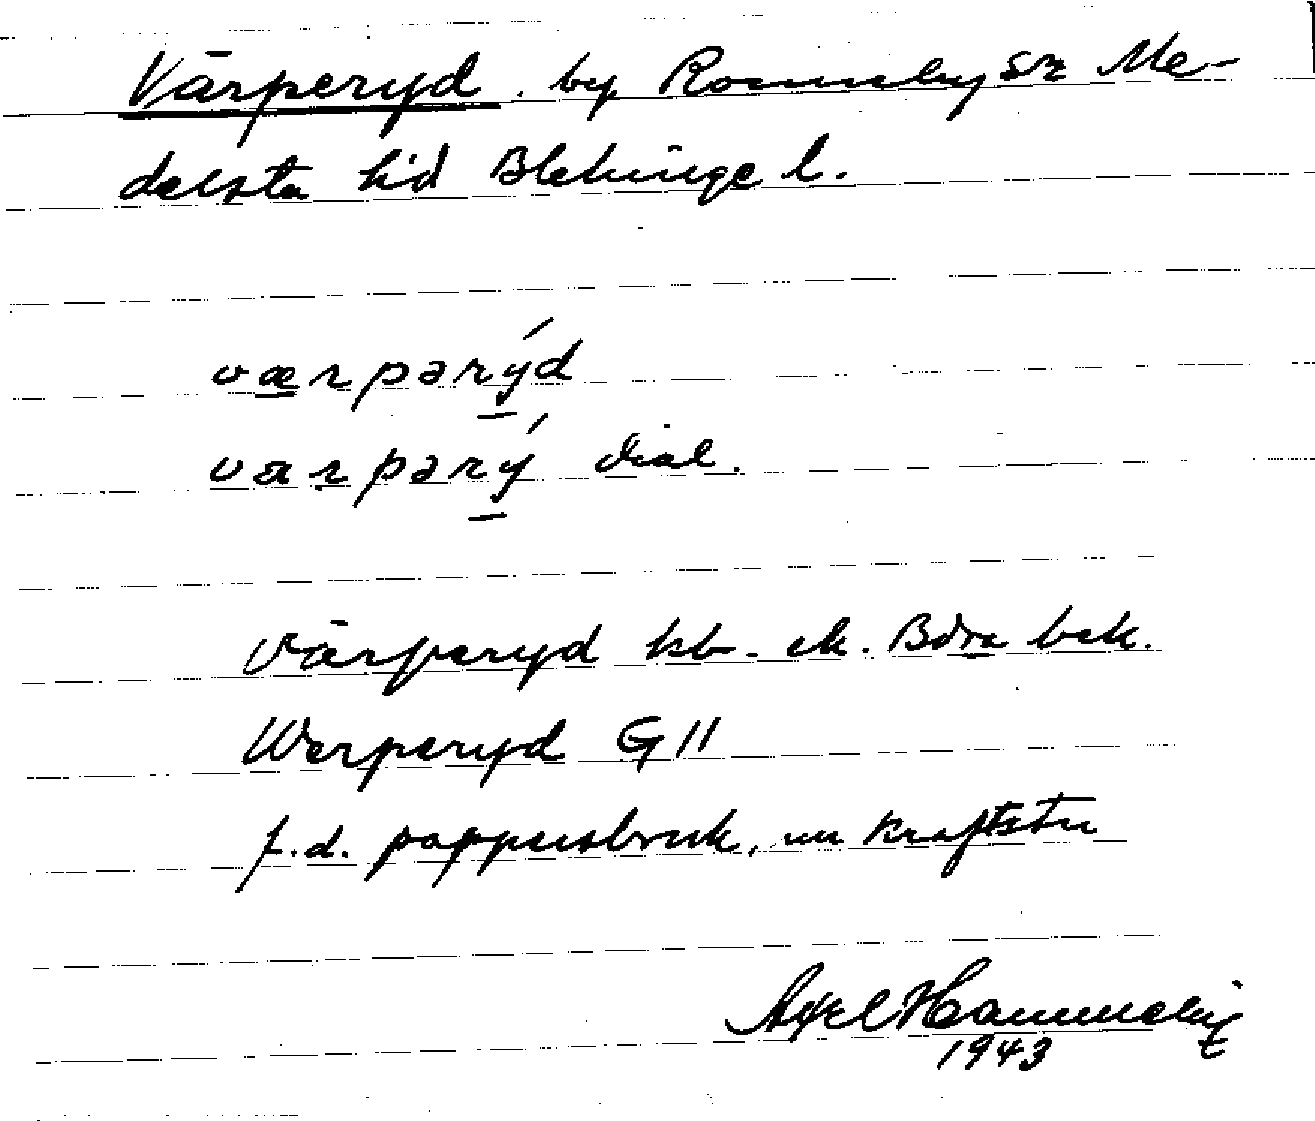 Värperyd. by Ronneby sn Me-
delsta hd Blekinge l.
værpərýd
varpərý dial.
Värperyd kb. ek.
Werperyd G
f.d. pappersbruk, nu kraftstn
Axel Hammelin
1943